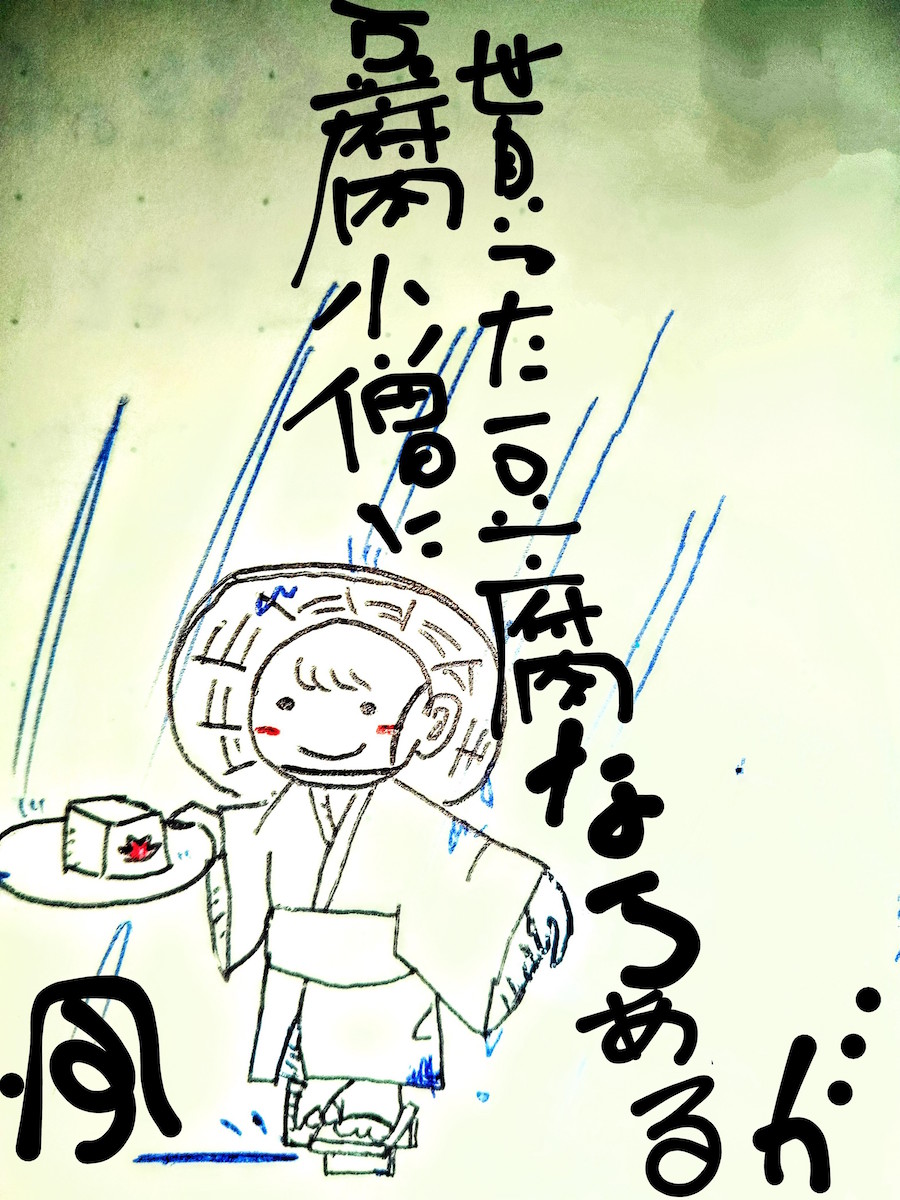 豆腐小僧に
貰った豆腐ならあるが